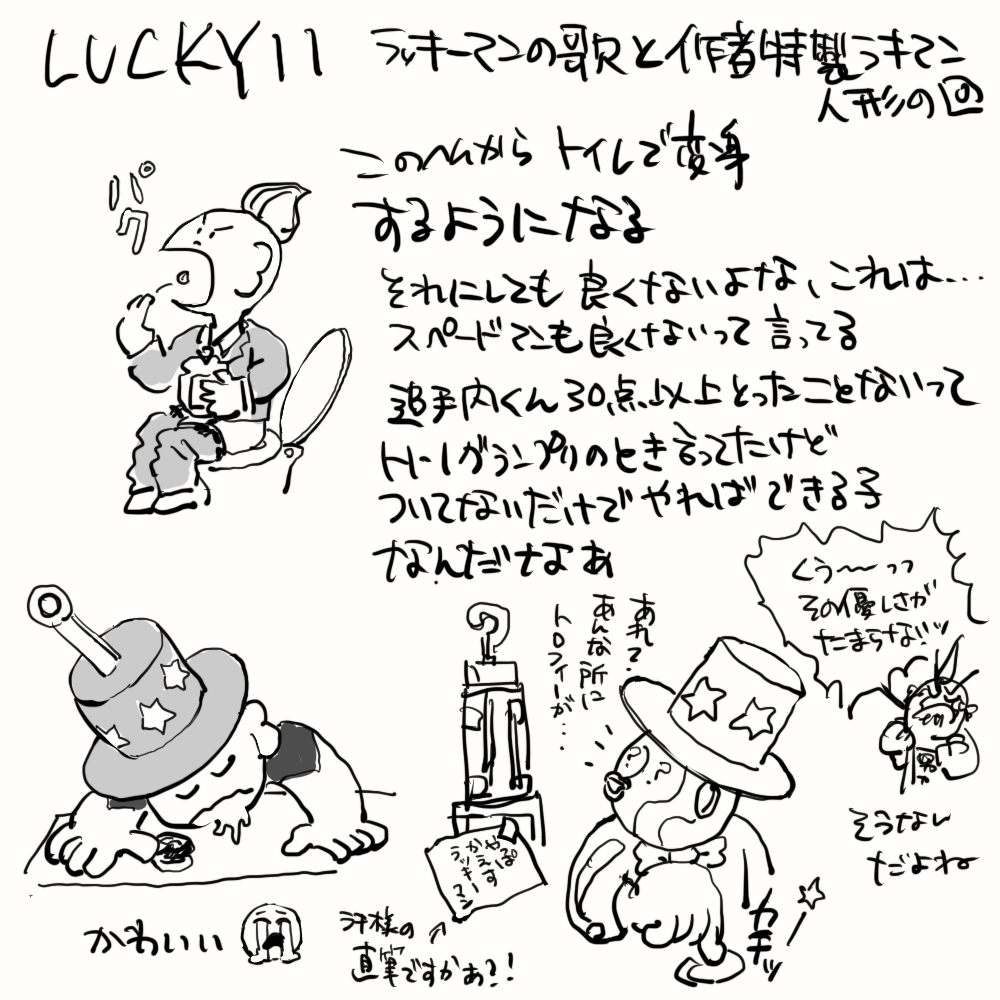 LUCKY11
ラッキーマンの歌と作者特製ラキマン
人形の回
このへんから トイレで変身
するようになる
パク
それにしても 良くないよな、これは...
スペードマンも良くないって 言ってる
追手内くん30点以上とったことないって
トーナグランプリのとき言ってたけど
ついてないだけでやればできる子
なんだなぁ
くう〜っっ
その優しさが
たまらないッ
あれ?
あんな所に
トロフィーが...
そうなん
だよね
やっぱ
かえす
ラッキーマン
かわいい
直筆ですかぁ?!
カチッ